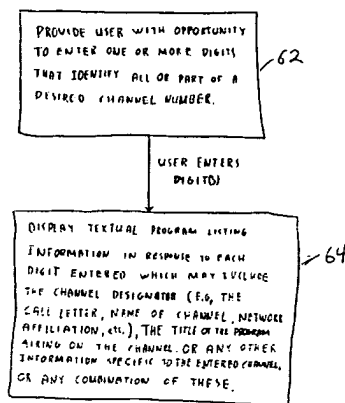 PROVIDE USER WITH OPPORTUNITY
TO ENTER ONE OR MORE DIGITS
THAT IDENTIFY ALL OR PART OF A
DESIRED CHANNEL NUMBER.
62
USER ENTERS
DIGIT(S)
DISPLAY TEXTUAL PROGRAM LISTING
INFORMATION IN RESPONSE TO EACH
DIGIT ENTERED WHICH MAY INCLUDE
THE CHANNEL DESIGNATOR (E.G, THE
CALL LETTER, NAME OF CHANNEL, NETWORK
AFFILIATION, etc.), THE TITLE OF THE PROGRAM
AIRING ON THE CHANNEL. OR ANY OTHER
INFORMATION SPECIFIC TO THE ENTERED CHANNEL,
OR ANY COMBINATION OF THESE.
64